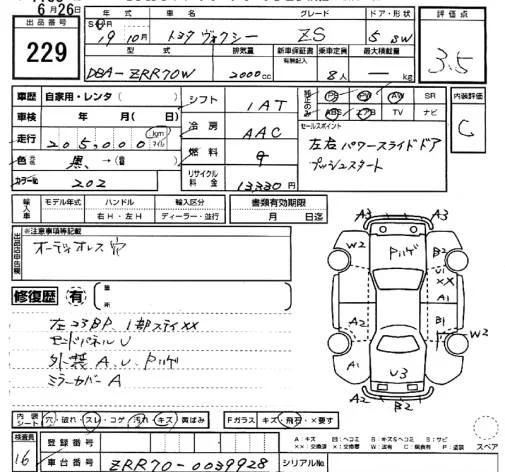 6月26日
出品番号
229
年式 車名 グレード ドア・形状
19年10月 トヨタ ヴォクシー ZS 5 SW
型式 排気量 新車保証書 有無記入 乗車定員 最大積載量
DBA-ZRR70W 2000cc 8人 — kg
評価点
3.5
車歴 自家用・レンタ( )
車検 年 月( 日)
走行 205,000 km マイル
色 黒 →(替 )
カラーNo 202
シフト 1AT
冷房 AAC
燃料 g
リサイクル料金 13330円
PS PW AW SR
ABS エアB TV ナビ
セールスポイント
左右パワースライドドア
プッシュスタート
内装評価
C
輸入車 モデル年式 ハンドル 輸入区分 書類有効期限
右H・左H ディーラー・並行 月 日迄
出品店申告欄
※注意事項等記載
オーディオレス 穴
修復歴 有 箇所
左コアBP、1部ステイ××
エンドパネルU
外装A、U、Pハゲ
ミラーカバーA
A3 A3
W2 Pハゲ B2
U1
××
A1
A2 B1
W2
A1 U3
A2 A2
B2
内装シート 穴・破れ・スレ・コゲ・汚れ・キズ・黄ばみ
Fガラス キズ・飛石・×要す
検査員
16
登録番号
車台番号 ZRR70-0039928
シリアルNo.
A:キズ 凹:ヘコミ B:キズ&ヘコミ S:サビ
××:交換済 ×:交換要 W:波有 C:腐食有 P:塗装
スペア